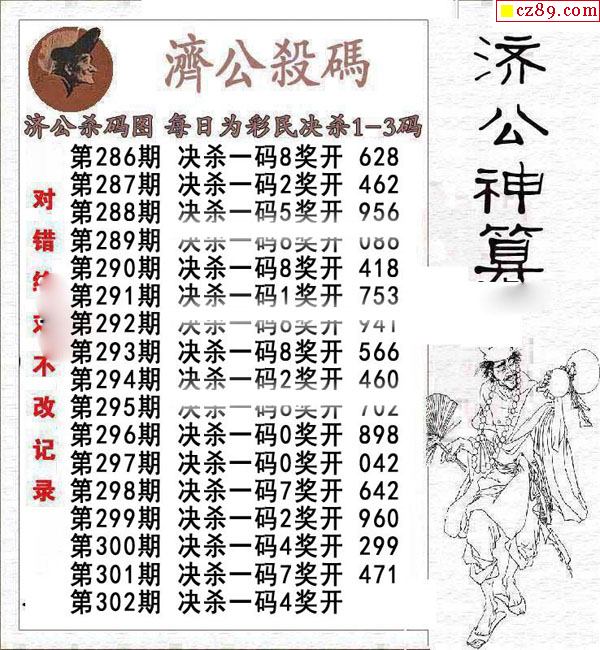 cz89.com
濟公殺碼
济公杀码图 每日为彩民决杀1-3码
第286期 决杀一码8奖开 628
第287期 决杀一码2奖开 462
第288期 决杀一码5奖开 956
第289期 决杀一码6奖开 086
第290期 决杀一码8奖开 418
第291期 决杀一码1奖开 753
第292期 决杀一码6奖开 941
第293期 决杀一码8奖开 566
第294期 决杀一码2奖开 460
第295期 决杀一码6奖开 702
第296期 决杀一码0奖开 898
第297期 决杀一码0奖开 042
第298期 决杀一码7奖开 642
第299期 决杀一码2奖开 960
第300期 决杀一码4奖开 299
第301期 决杀一码7奖开 471
第302期 决杀一码4奖开
对错 不改记录
济公神算